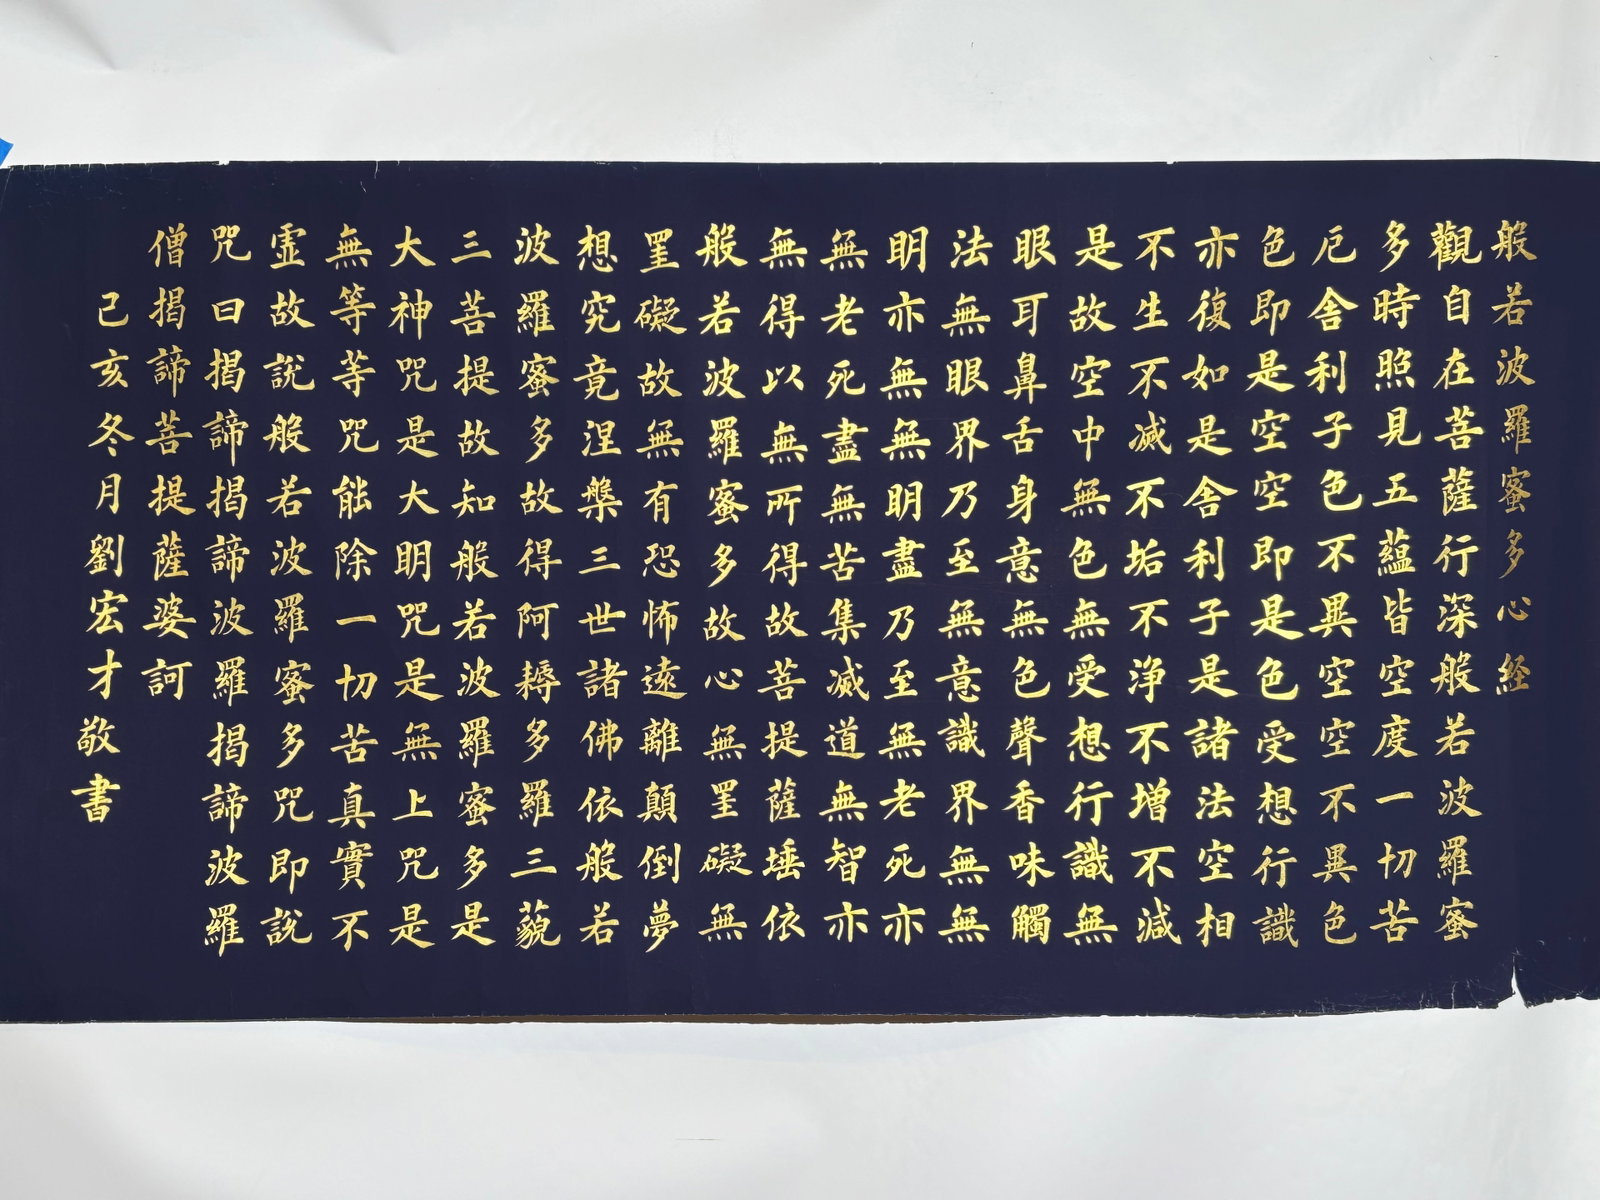 般若波羅蜜多心経
觀自在菩薩行深般若波羅蜜
多時照見五蘊皆空度一切苦
厄舍利子色不異空空不異色
色即是空空即是色受想行識
亦復如是舍利子是諸法空相
不生不滅不垢不净不增不減
是故空中無色無受想行識無
眼耳鼻舌身意無色聲香味觸
法無眼界乃至無意識界無無
明亦無無明盡乃至無老死亦
無老死盡無苦集滅道無智亦
無得以無所得故菩提薩埵依
般若波羅蜜多故心無罣礙無
罣礙故無有恐怖遠離顛倒夢
想究竟涅槃三世諸佛依般若
波羅蜜多故得阿耨多羅三藐
三菩提故知般若波羅蜜多是
大神咒是大明咒是無上咒是
無等等咒能除一切苦真實不
虚故說般若波羅蜜多咒即說
咒曰揭諦揭諦波羅揭諦波羅
僧揭諦菩提薩婆訶
己亥冬月劉宏才敬書